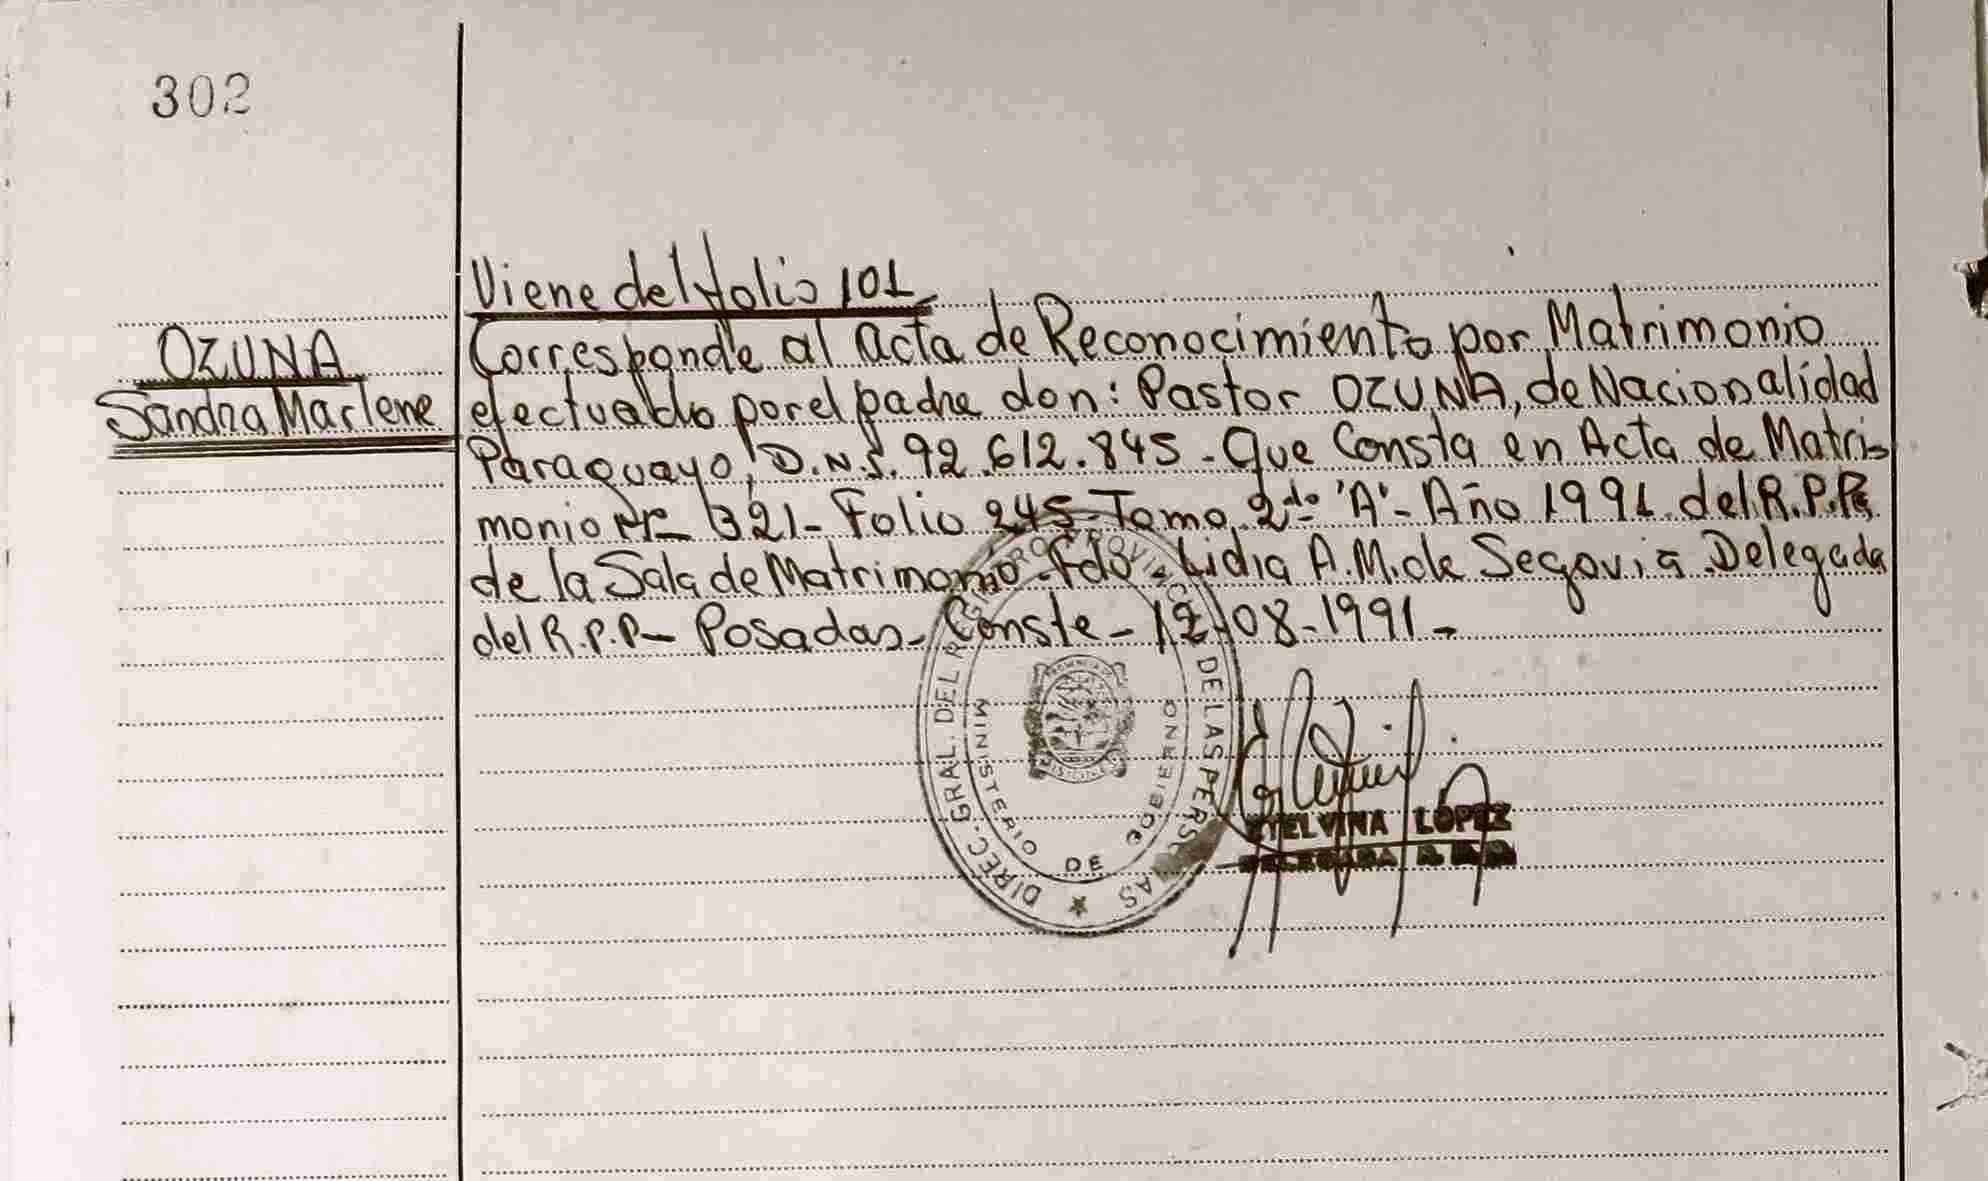 302
OZUNA
Sandra Marlene
Viene del folio 101
Corresponde al acta de Reconocimiento por Matrimonio
efectuado por el padre don: Pastor OZUNA, de Nacionalidad
Paraguayo, D.N.I. 92.612.845 - Que Consta en Acta de Matri-
monio Nº 321 - Folio 245 - Tomo 2do 'A' - Año 1991 del R.P.P.
de la Sala de Matrimonio - Fdo - Lidia A.M. de Segovia Delegada
del R.P.P - Posadas - Conste - 12-08-1991 -
DIREC. GRAL. DEL REGISTRO PROVINCIAL DE LAS PERSONAS
MINISTERIO DE GOBIERNO
ETELVINA LOPEZ
DELEGADA R.P.P.